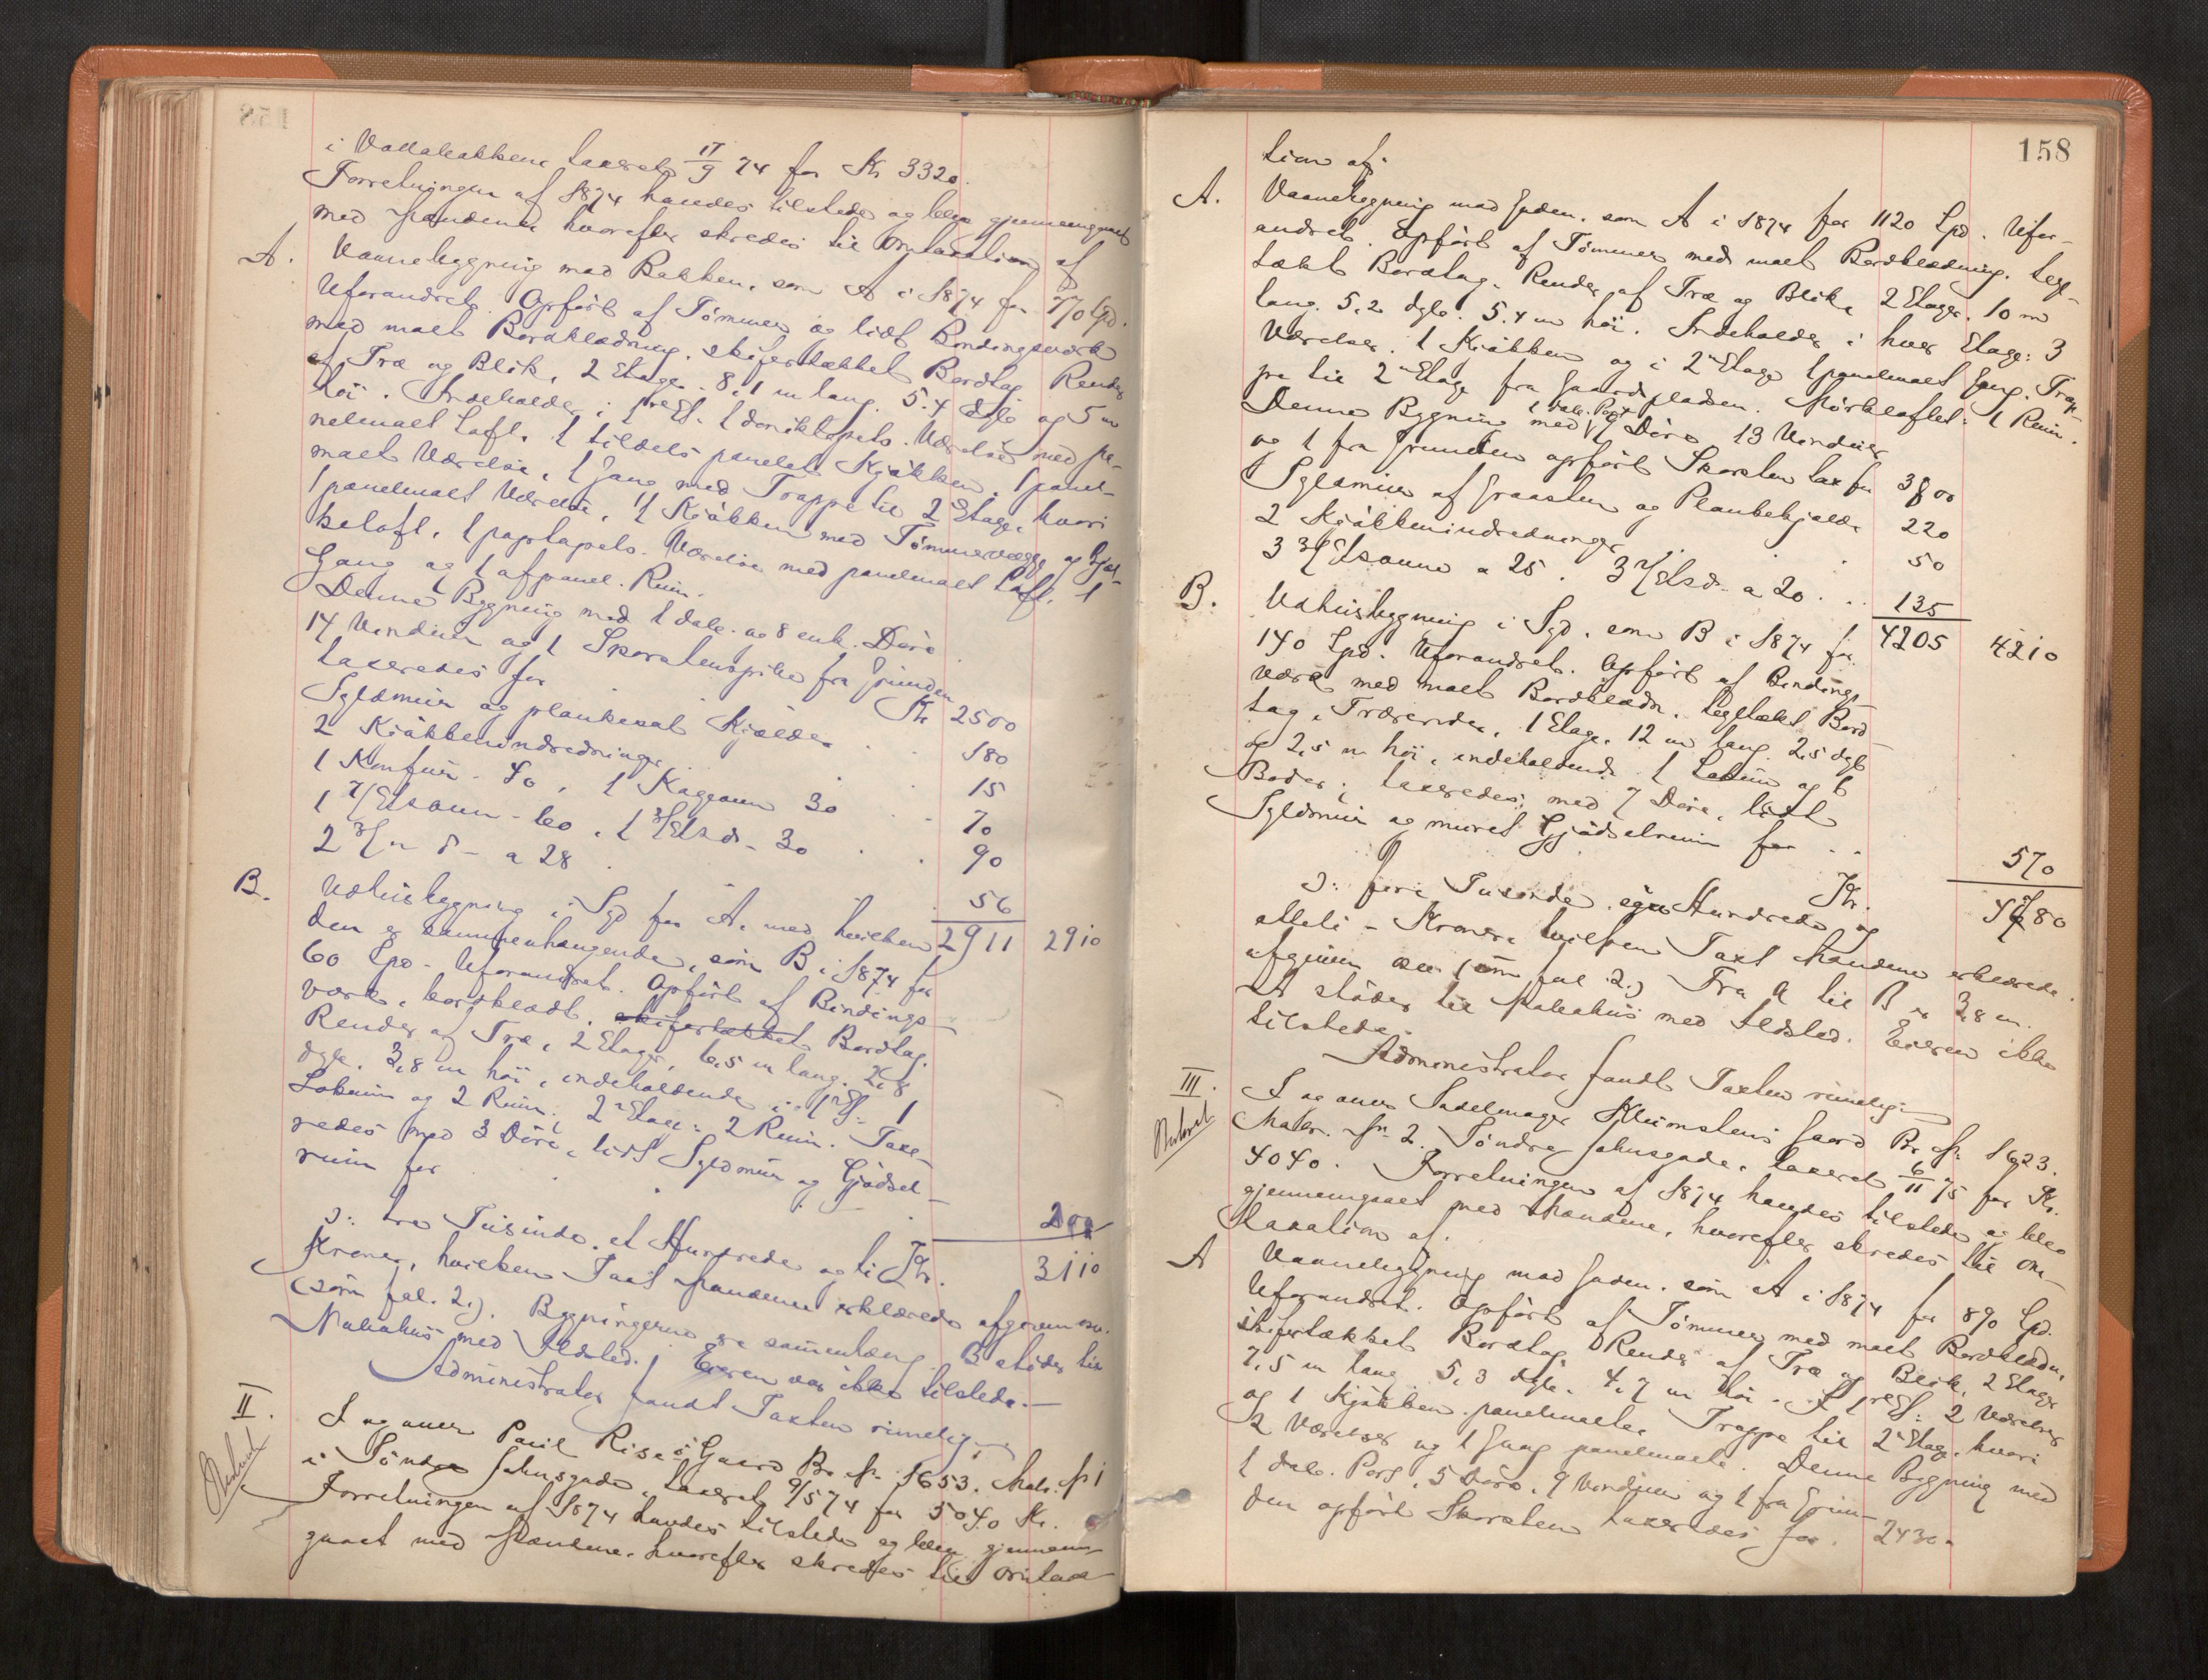 i Vollabakken taxeret 17/9 74 for Kr 3320.
Forretningen af 1874 havdes tilstede og blev gjennemgaaet
med Mændene hvorefter skredes til Omtaxation af
A. Vaanebygning mod Bakken, som A i 1874 for 770 Spd.
Uforandret. Opført af Tømmer og lidt Bindingsværk
med malt Bordklædning, skifertækket Bordtag Render
af Træ og Blik, 2 Etager. 8,1 m lang. 5.4 dyb og 5 m
høi. Indeholder i 1ste Et. 1 Værelse med pa-
nelmalt Loft, 1 tildels panelet Kjøkken, 1 panel-
malt Værelse, 1 Gang med Trappe til 2den Etage, hvori
1 panelmalt Værelse, 1 Kjøkken med Tømmervægge og Bjæl-
keloft, 1 paptapets. Værelse med panelmalt Loft, 1
Gang og 1 afpanel. Rum.
Denne Bygning med 1 dob. og 8 enk. Døre
14 Vinduer og 1 Skorstenspibe fra Grunden
taxeredes for Kr 2500
Syldmur og plankesat Kjælder . . 180
2 Kjøkkenindredninger . . 15
1 Komfur - 40, 1 Kageovn 30 . . 70
1 Etsovn - 60, 1 3/Etsd. 30 . . 90
2 3/ " d - a 28 . . 56
2911 2910
B. Udhusbygning i Sgd for A, med hvilken
den er sammenhængende, som B i 1874 for
60 Spd. Uforandret. Opført af Bindings-
værk, bordklædt, skifertækket Bordtag.
Render af Træ, 2 Etager, 6,5 m lang, 2,8
dyb. 3,8 m høi, indeholdende i 1ste Et: 1
Lokum og 2 Rum; 2den Etage: 2 Rum. Taxe-
redes med 3 Døre, lidt Syldmur og Gjødsel-
rum for . . 200
Kr. 3110
ɔ: tre Tusinde, et Hundrede og ti
Kroner, hvilken Taxt Mændene erklærede afgiven ov.
(som fol. 2.). Bygningerne ere sammenhæng. B støder til
Nabohus med Ildsted. Eieren var ikke tilstede.-
Administrator fandt Taxten rimelig.
II. I og over Paul Risøs Gaard Br. No. 1653, Matr. No 1
i Søndre Johnsgade, taxeret 9/5 74 for 5040 Kr.
Forretningen af 1874 havdes tilstede og blev gjennem-
gaaet med Mændene, hvorefter skredes til Omtaxa-
158
tion af:
A. Vaanebygning mod Gaden, som A i 1874 for 1120 Spd. Ufor-
andret. Opført af Tømmer med malt Bordklædning. Tegl-
tækt Bordtag. Render af Træ og Blik, 2 Etager. 10 m
lang. 5,2 dyb. 5.4 m høi. Indeholder i hver Etage: 3
Værelser, 1 Kjøkken og i 2den Etage 1 panelmalt Gang. Trap-
pe til 2den Etage fra Gaardspladsen. Mørkeloftet: 1 Rum.
Denne Bygning med 1 dob. Port 9 Døre, 13 Vinduer
og 1 fra Grunden opført Skorsten tax for 3800
Syldmur af Graasten og Plankekjælder 220
2 Kjøkkenindredninger . . 50
3 3/Etsovne a 25. 3 2/Etsd. a 20 . . 135
4205 4210
B. Udhusbygning i Sgd. som B i 1874 for
140 Spd. Uforandret. Opført af Bindings-
værk med malt Bordklædn. tegltækt Bord-
tag, Trærender, 1 Etage, 12 m lang, 2,5 dyb
og 2,5 m høi, indeholdende 1 Lokum og 6
Boder; taxeredes med 7 Døre, lidt
Syldmur og muret Gjødselrum for . . 570
Kr. 4780
ɔ: fire Tusinde, syv Hundrede og
otteti - Kroner, hvilken Taxt Mændene erklærede
afgiven ov. (som fol. 2.) Fra A til B er 3,8 m.
A støder til Nabohus med Ildsted. Eieren ikke
tilstede.
Administrator fandt Taxten rimelig.
III. I og over Sadelmager Klumstens Gaard Br. No. 1623.
Matr. No. 2. Søndre Johnsgade, taxeret 6/11 75 for Kr.
4040. Forretningen af 1874 havdes tilstede og blev
gjennemgaaet med Mændene, hvorefter skredes til Om-
taxation af.
A Vaanebygning mod Gaden, som A i 1874 for 890 Spd.
Uforandret. Opført af Tømmer med malt Bordklædn,
skifertækket Bordtag, Render af Træ og Blik, 2 Etager
7,5 m lang 5,3 dyb. 4,7 m høi. I 1ste Et: 2 Værelser
og 1 Kjøkken, panelmalte. Trappe til 2den Etage, hvori
2 Værelser og 1 Gang panelmalte. Denne Bygning med
1 dob. Port, 5 Døre, 9 Vinduer og 1 fra Grun-
den opført Skorsten taxeredes for. 2430.